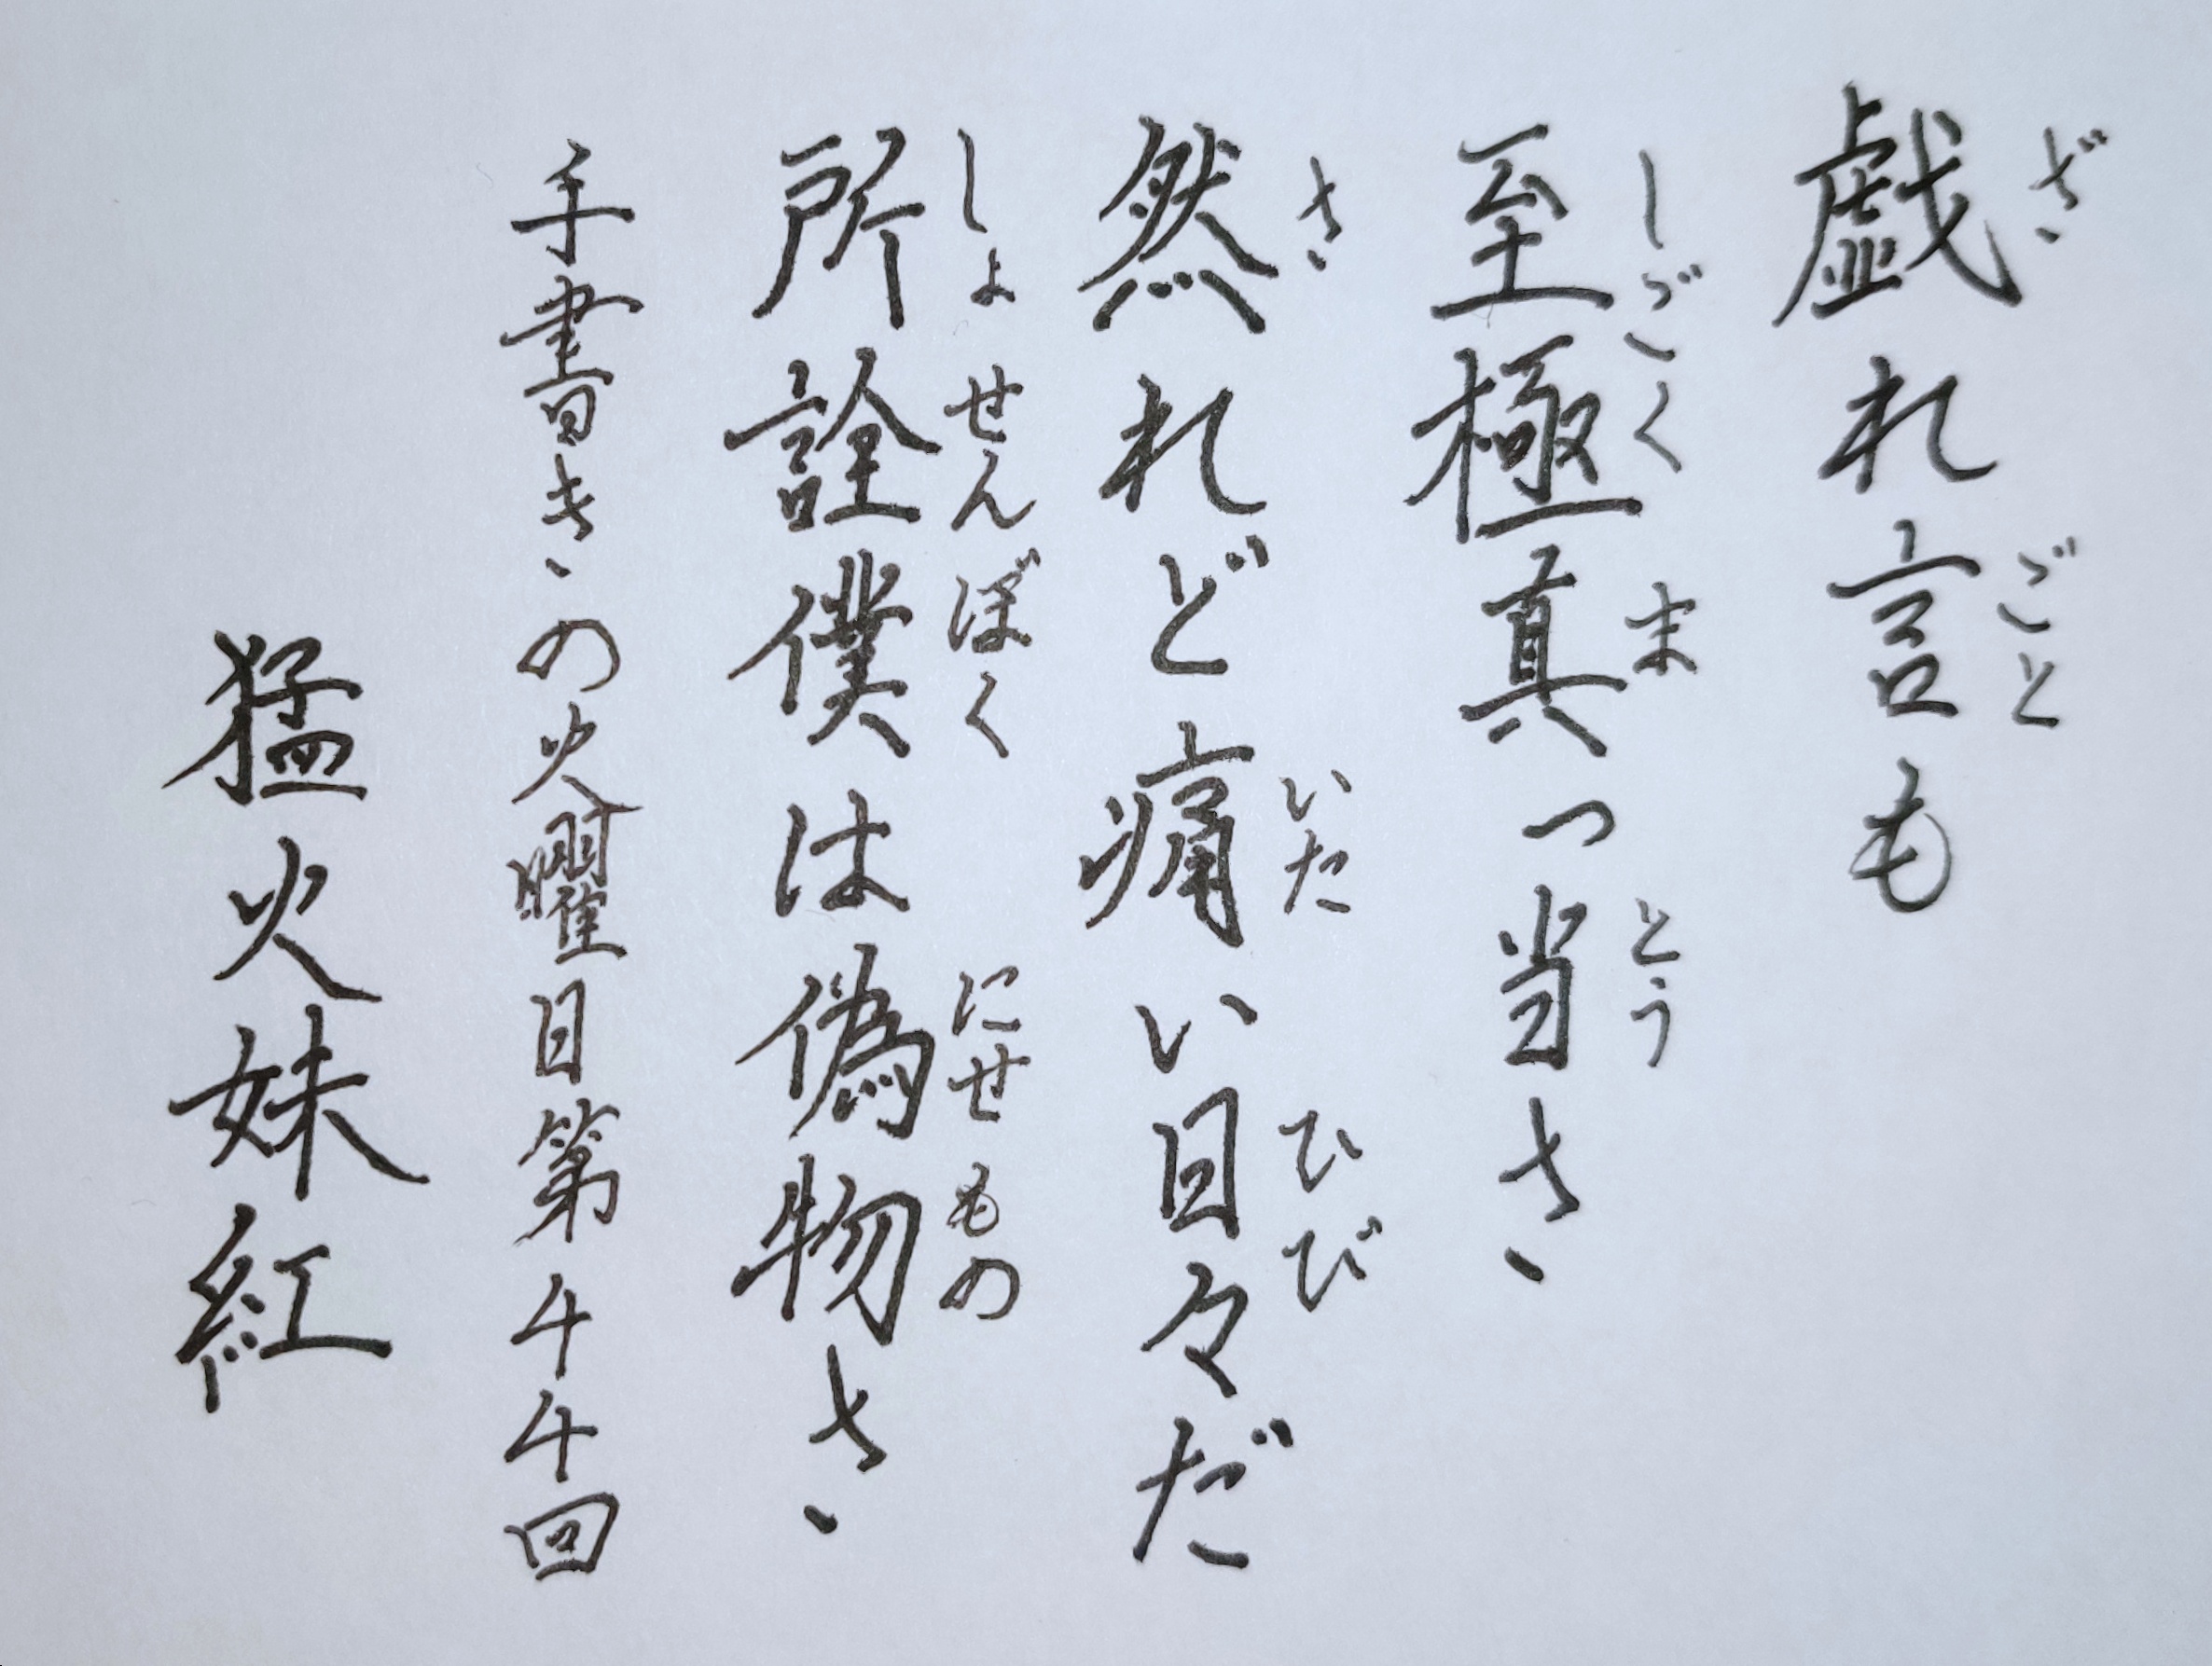 戯れ言も
ざ ごと
至極真っ当さ
しごく ま とう
然れど痛い日々だ
さ いた ひび
所詮僕は偽物さ
しょせんぼく にせもの
手書きの火曜日第44回
猛火妹紅